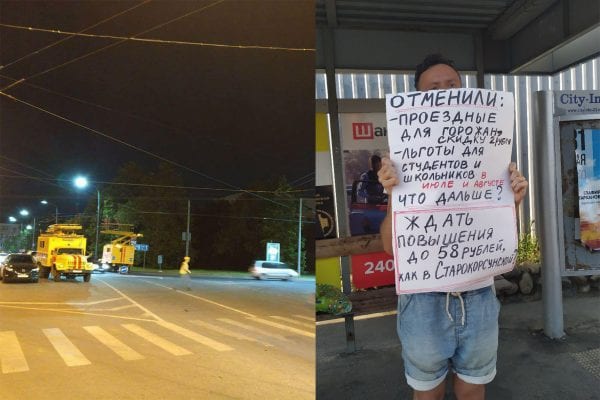 ОТМЕНИЛИ:
-ПРОЕЗДНЫЕ
ДЛЯ ГОРОЖАН
СКИДКУ 2 РУБЛЯ
-ЛЬГОТЫ ДЛЯ
СТУДЕНТОВ И
ШКОЛЬНИКОВ В
ИЮЛЕ И АВГУСТЕ
ЧТО ДАЛЬШЕ?
ЖДАТЬ
ПОВЫШЕНИЯ
ДО 58 РУБЛЕЙ,
КАК В СТАРОКОРСУНСКОЙ
Ша
240
City-In